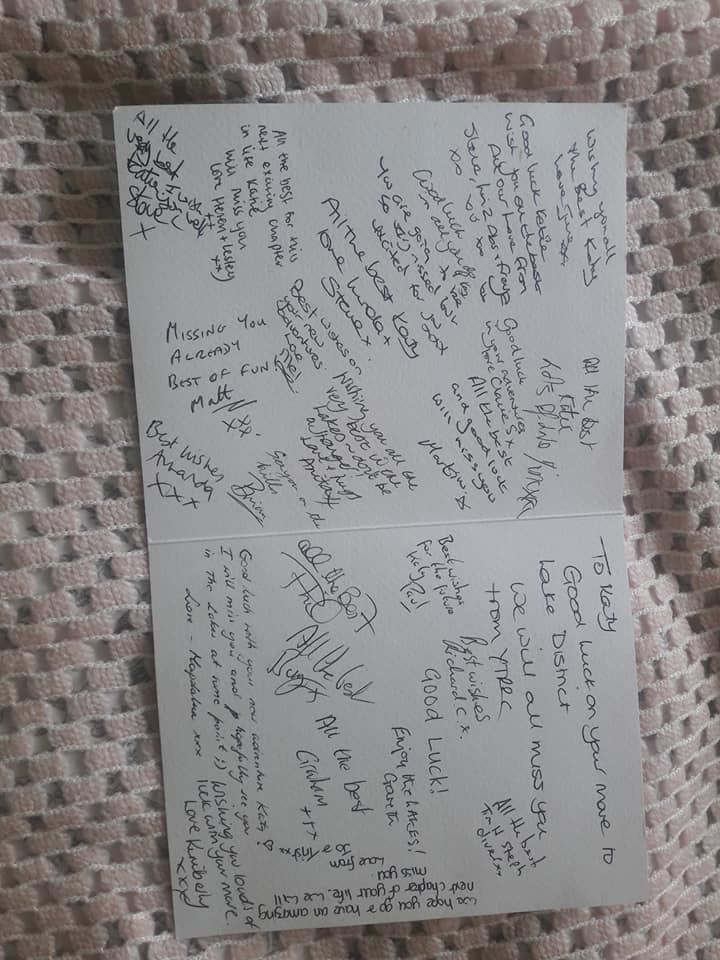 Wishing you all
the best Katy
Love June xx
Good luck Katie
Wish you all the best
All our love from
Steve, Kim Abi + Freya
xxx xx xx
Good luck
You are going to be
so missed
so excited for you xx
All the best Katy
love Linda +
Steve x.
All the best for this
next exciting chapter
in life Katie
will miss you
Love Helen + Lesley
xx
All the
love
x
Best wishes on
your new
adventures.
Love
MISSING YOU
ALREADY
BEST OF FUN
Matt xx.
Best wishes
Amanda
xxx
All the best
Katy
Good luck
in your adventures
love Claire S x
All the best
and good luck
will miss you
Martin x
Wishing you all the
very best in the
Lakes
See you in the
hills
Brian
To Katy
Good luck on your move to
Lake District
We will all miss you
from YTRRC
All the best
Tim & Steph
Best wishes
for the future
Katy Paul
Best wishes
Richard C. x
GOOD LUCK!
Enjoy the LAKES!
Gareth
All the Best
All the best
All the best
Graham
++x
We hope you go & have an amazing
next chapter of your life. We will
miss you.
Love from
Good luck with your new adventure Katy! ♡
I will miss you and hopefully see you
in the Lakes at some point :)
Love - Magdalena xxx
Wishing you loads of
luck with your move.
Love Kimberly
xxx